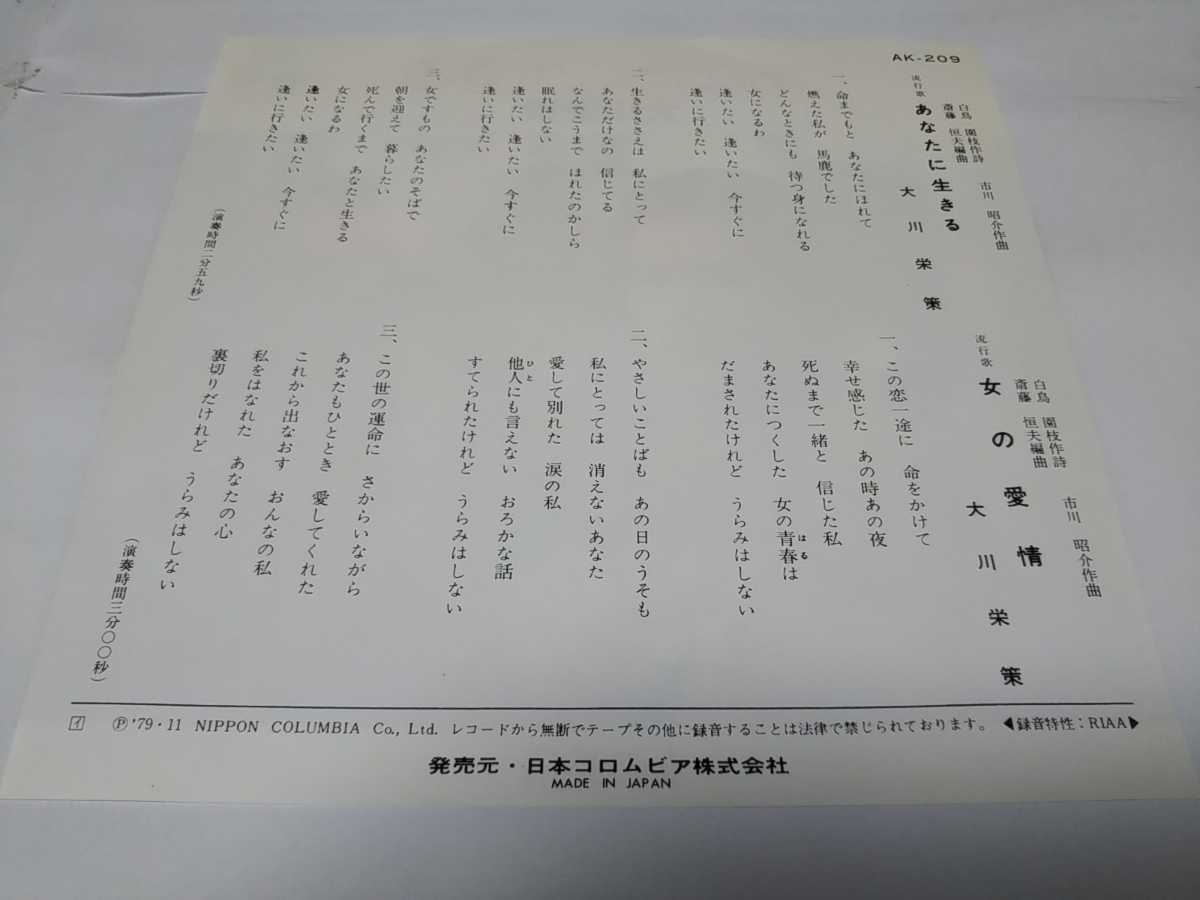 AK-209
流行歌
あなたに生きる
白鳥 園枝作詩
斎藤 恒夫編曲
市川 昭介作曲
大川栄策
一、命までもと あなたにほれて
燃えた私が 馬鹿でした
どんなときにも 待つ身になれる
女になるわ
逢いたい 逢いたい 今すぐに
逢いに行きたい
二、生きるささえは 私にとって
あなただけなの 信じてる
なんでこうまで ほれたのかしら
眠れはしない
逢いたい 逢いたい 今すぐに
逢いに行きたい
三、女ですもの あなたのそばで
朝を迎えて 暮らしたい
死んで行くまで あなたと生きる
女になるわ
逢いたい 逢いたい 今すぐに
逢いに行きたい
(演奏時間二分五九秒)
流行歌
女の愛情
白鳥 園枝作詩
斎藤 恒夫編曲
市川 昭介作曲
大川栄策
一、この恋一途に 命をかけて
幸せ感じた あの時あの夜
死ぬまで一緒と 信じた私
あなたにつくした 女の青春はるは
だまされたけれど うらみはしない
二、やさしいことばも あの日のうそも
私にとっては 消えないあなた
愛して別れた 涙の私
他人ひとにも言えない おろかな話
すてられたけれど うらみはしない
三、この世の運命に さからいながら
あなたもひととき 愛してくれた
これから出なおす おんなの私
私をはなれた あなたの心
裏切りだけれど うらみはしない
(演奏時間三分〇〇秒)
イ Ⓟ'79・11 NIPPON COLUMBIA Co., Ltd. レコードから無断でテープその他に録音することは法律で禁じられております。 ◀録音特性:RIAA▶
発売元・日本コロムビア株式会社
MADE IN JAPAN